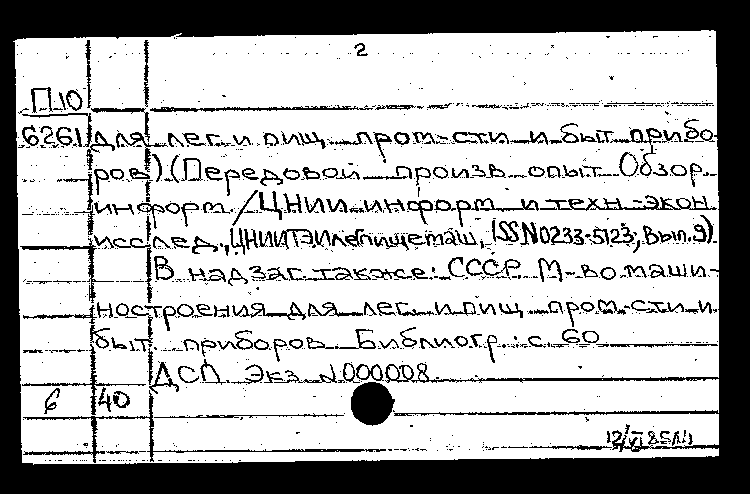 2
П10
6261 для лег. и пищ. пром-сти и быт. прибо-
ров) (Передовой произв. опыт. Обзор.
информ. / ЦНИИ информ. и техн.-экон.
исслед., ЦНИИТЭИлегпищемаш, ISSN0233-5123; Вып.9)
В надзаг. также: СССР. М-во маши-
ностроения для лег. и пищ. пром-сти и
быт. приборов. Библиогр.: с. 60
ДСП. Экз. N000008.
6 40
12/VI 85